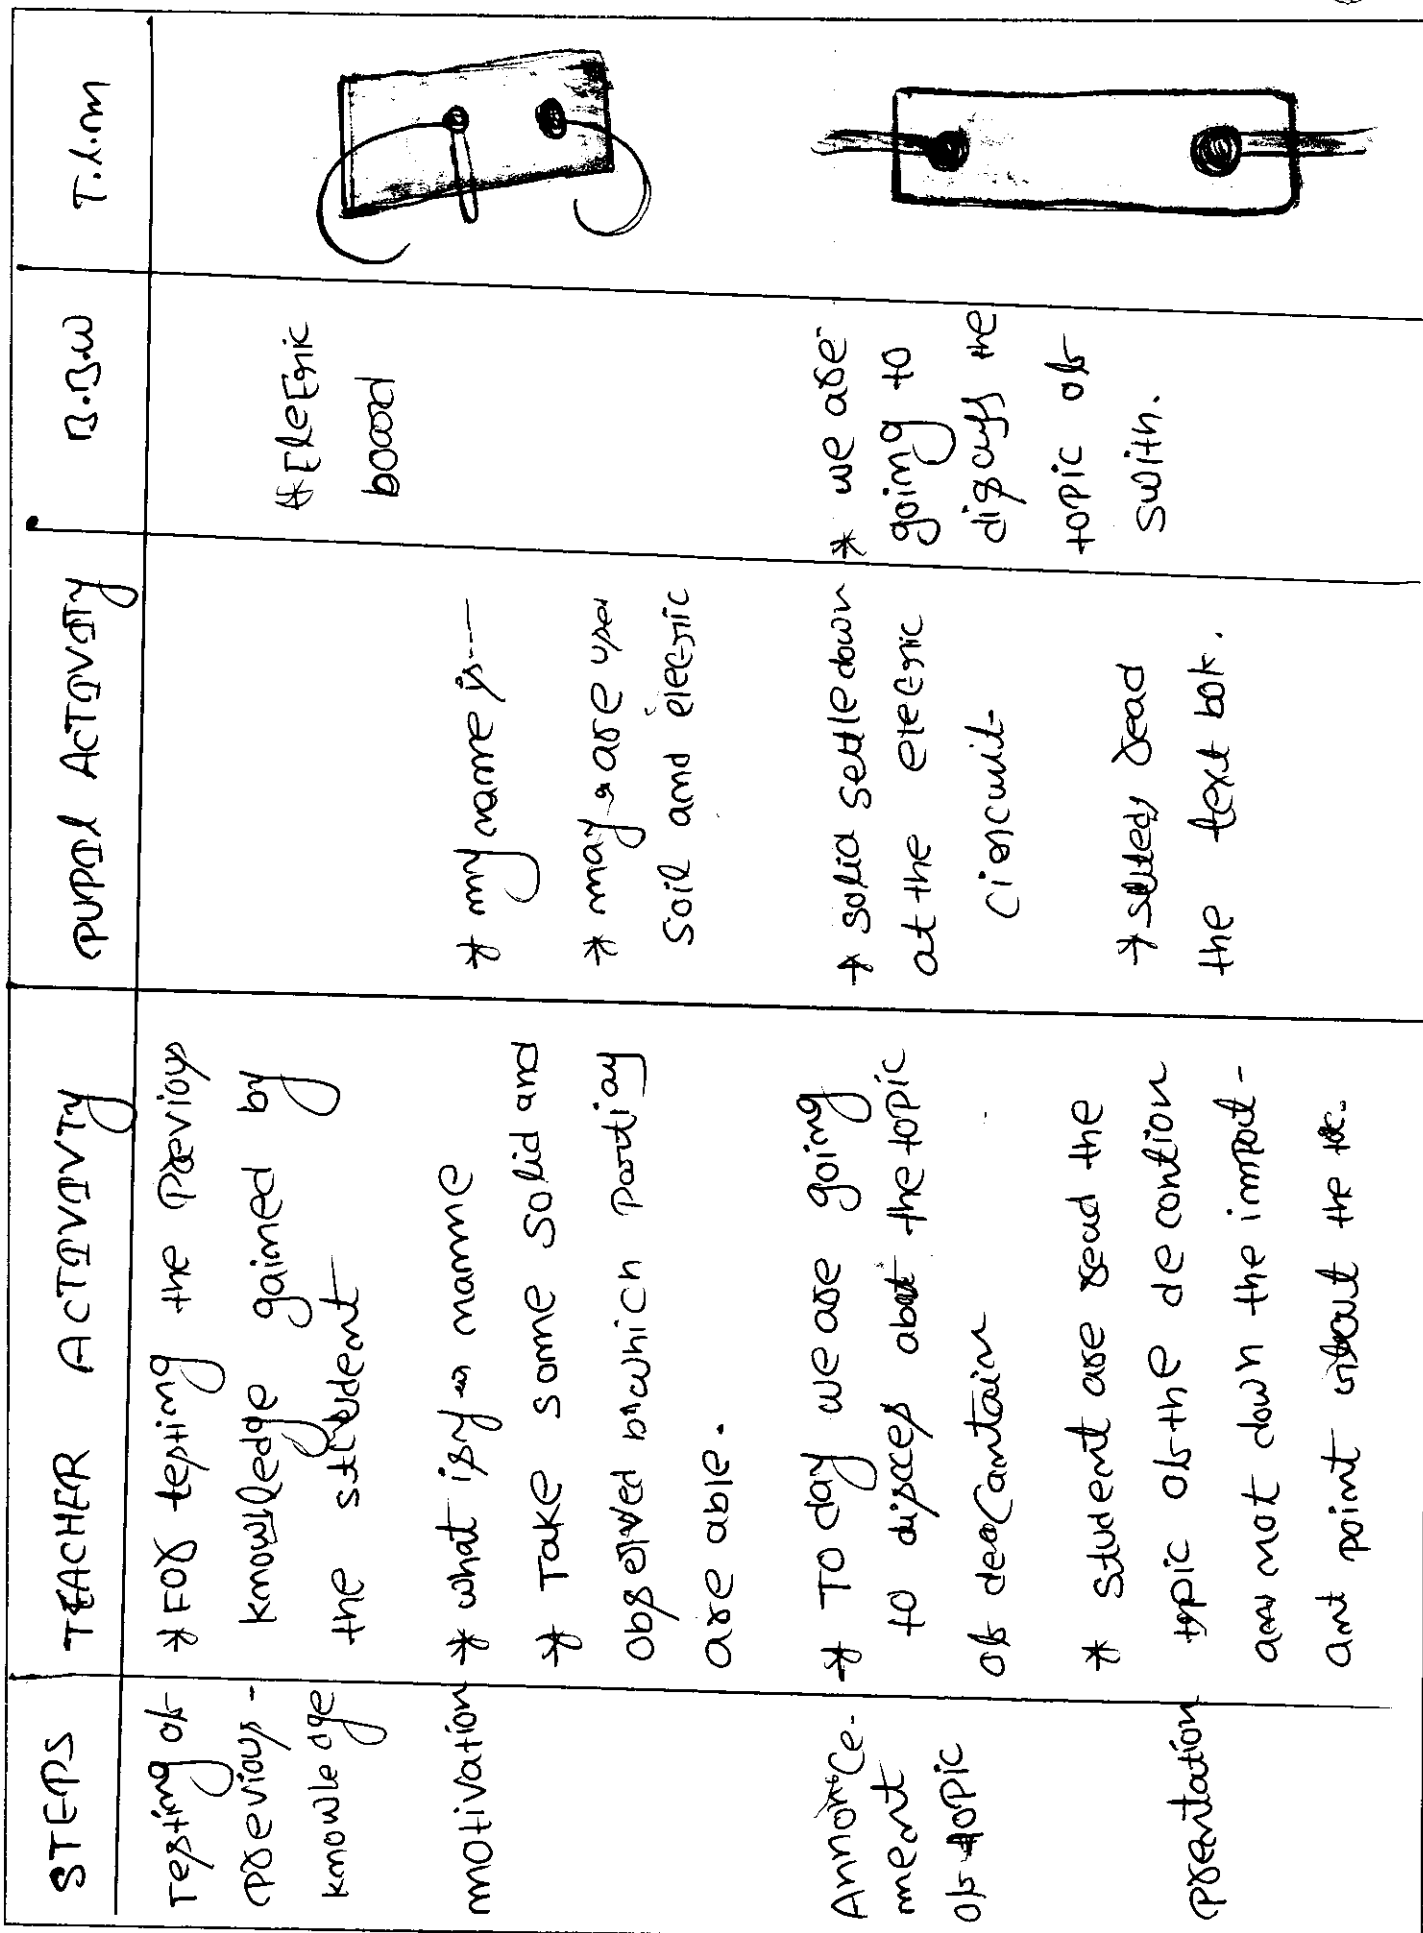 STEPS
TEACHER ACTIVITY
PUPIL ACTIVITY
B.B.W
T.L.M
Testing of
previous-
knowledge
* For testing the Previous
knowledge gained by
the student
* Eletric
board
motivation
* what is name
* Take some solid and
observed which
are able.
* my name is----
* may are use
soil and eletric
Annonce-
ment
of topic
* To day we are going
to discces about the topic
of decantain
* solid settledown
at the eletric
Ciercuit-
* we are
going to
discuss the
topic of
swith.
presentation
* student are read the
topic of the decantion
and not down the import-
ant point about the
* read
the text bok.